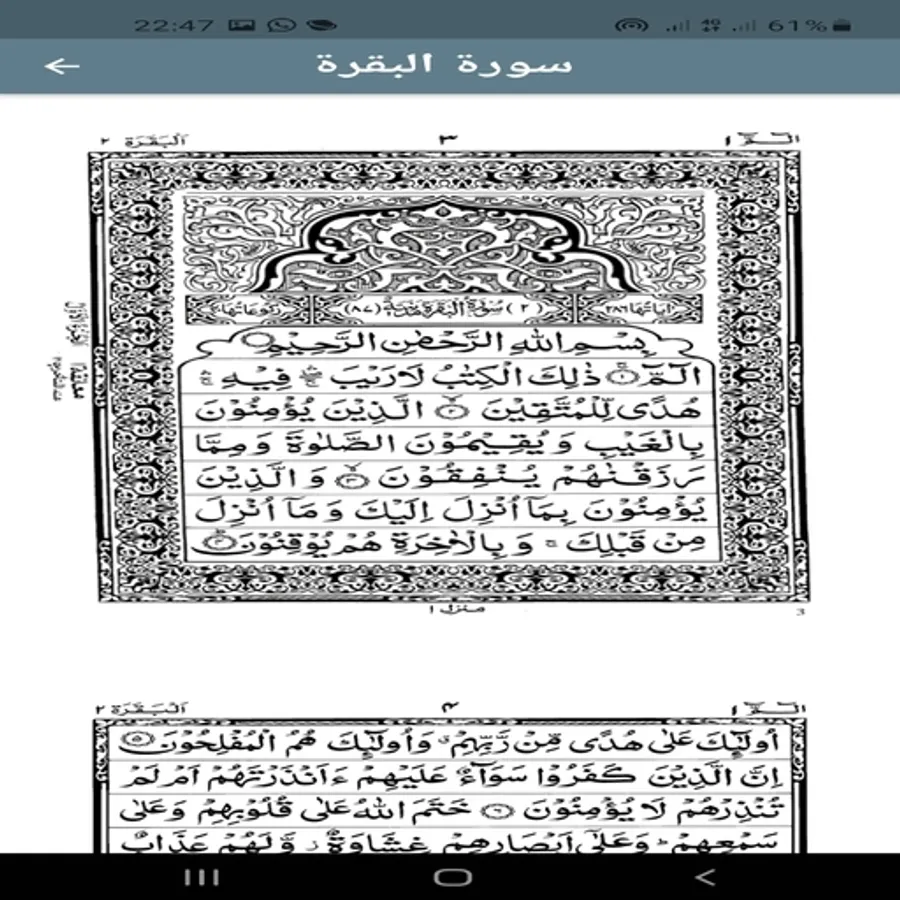 22:47 4G 61%
سورة البقرة
الٓمّٓ ١ ٣ اَلْبَقَرَة ٢
اٰیاتها ٢٨٦ (٢) سُوْرَةُ الْبَقَرَةِ مَدَنِيَّةٌ (٨٧) رکوعاتها
بِسْمِ اللّٰهِ الرَّحْمٰنِ الرَّحِيْمِ
الٓمّٓ ۝١ ذٰلِكَ الْكِتٰبُ لَا رَيْبَ ۛ فِيْهِ ۛ
هُدًى لِّلْمُتَّقِيْنَ ۝٢ الَّذِيْنَ يُؤْمِنُوْنَ
بِالْغَيْبِ وَ يُقِيْمُوْنَ الصَّلٰوةَ وَ مِمَّا
رَزَقْنٰهُمْ يُنْفِقُوْنَ ۝٣ وَ الَّذِيْنَ
يُؤْمِنُوْنَ بِمَاۤ اُنْزِلَ اِلَيْكَ وَ مَاۤ اُنْزِلَ
مِنْ قَبْلِكَ ۚ وَ بِالْاٰخِرَةِ هُمْ يُوْقِنُوْنَ ۝٤
منزل ١
3
الٓمّٓ ١ ٤ اَلْبَقَرَة ٢
اُولٰٓئِكَ عَلٰى هُدًى مِّنْ رَّبِّهِمْ ۗ وَ اُولٰٓئِكَ هُمُ الْمُفْلِحُوْنَ ۝٥
اِنَّ الَّذِيْنَ كَفَرُوْا سَوَآءٌ عَلَيْهِمْ ءَاَنْذَرْتَهُمْ اَمْ لَمْ
تُنْذِرْهُمْ لَا يُؤْمِنُوْنَ ۝٦ خَتَمَ اللّٰهُ عَلٰى قُلُوْبِهِمْ وَ عَلٰى
سَمْعِهِمْ ؕ وَ عَلٰٓى اَبْصَارِهِمْ غِشَاوَةٌ ز وَّ لَهُمْ عَذَابٌ